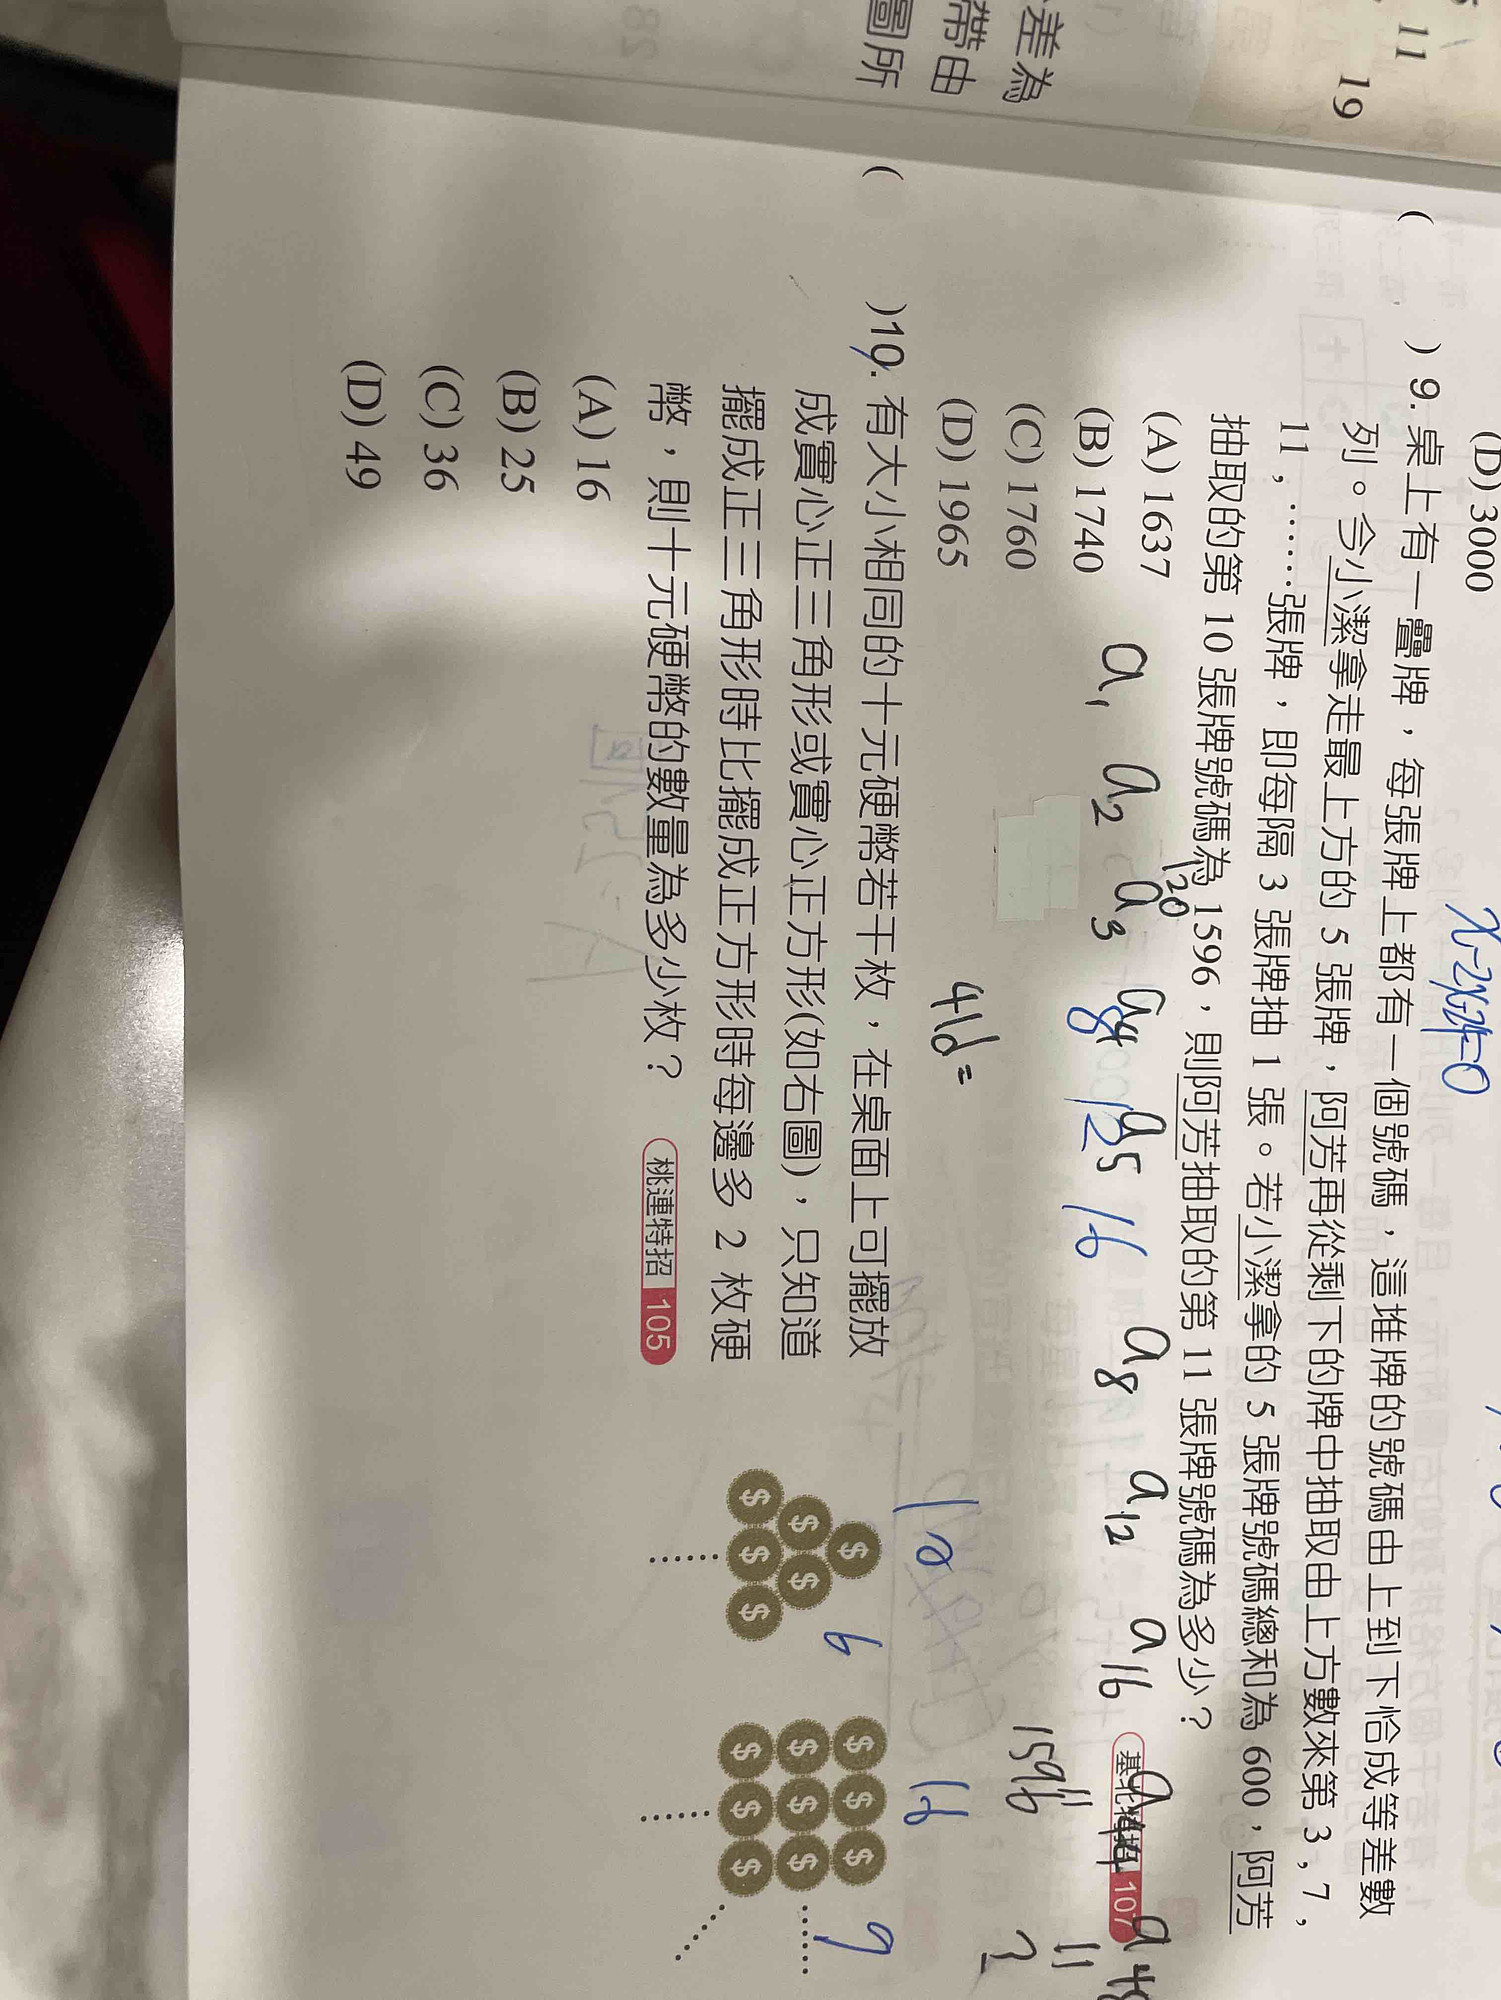 差為
帶由
圖所
11
19
(D) 3000
x-2x-24=0
( ) 9. 桌上有一疊牌，每張牌上都有一個號碼，這堆牌的號碼由上到下恰成等差數
列。今小潔拿走最上方的 5 張牌，阿芳再從剩下的牌中抽取由上方數來第 3，7，
11，……張牌，即每隔 3 張牌抽 1 張。若小潔拿的 5 張牌號碼總和為 600，阿芳
抽取的第 10 張牌號碼為 1596，則阿芳抽取的第 11 張牌號碼為多少？
基北特招 107
(A) 1637
(B) 1740
(C) 1760
(D) 1965
120
a1 a2 a3 a4 a5 a8 a12 a16 a44 a48
8 12 16
11 11
1596 ?
41d=
( ) 10. 有大小相同的十元硬幣若干枚，在桌面上可擺放
成實心正三角形或實心正方形(如右圖)，只知道
擺成正三角形時比擺成正方形時每邊多 2 枚硬
幣，則十元硬幣的數量為多少枚？ 桃連特招 105
(A) 16
(B) 25
(C) 36
(D) 49
10
16
6
9